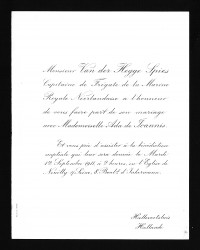 Monsieur Van der Hegge Spies
Capitaine de Frégate de la Marine
Royale Néerlandaise a l'honneur
de vous faire part de son mariage
avec Mademoiselle Ada de Joannis
Et vous prie d'assister à la bénédiction
nuptiale qui leur sera donnée le Mardi
Septembre à heures en l'Église de
Neuilly
Hellevoetsluis
Hollande